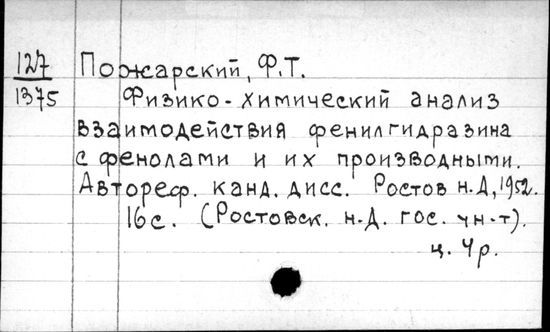 127 Пожарский, Ф.Т.
1375 Физико-химический анализ
взаимодействия фенилгидразина
с фенолами и их производными.
Автореф. канд. дисс. Ростов н.Д, 1952.
16 с. (Ростовск. н.Д. гос. ун-т).
ц. 4 р.